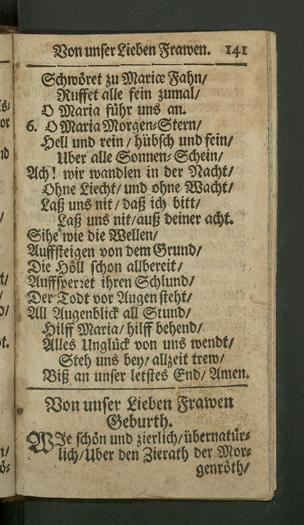 Von unser Lieben Frawen. 141
Schwöret zu Mariæ Fahn/
Ruffet alle fein zumal/
O Maria führ uns an.
6. O Maria Morgen-Stern/
Hell und rein/ hübsch und fein/
Uber alle Sonnen-Schein/
Ach! wir wandlen in der Nacht/
Ohne Liecht/ und ohne Wacht/
Laß uns nit/ daß ich bitt/
Laß uns nit/ auß deiner acht.
Sihe wie die Wellen/
Auffsteigen von dem Grund/
Die Höll schon allbereit/
Auffsperret ihren Schlund/
Der Todt vor Augen steht/
All Augenblick all Stund/
Hilff Maria/ hilff behend/
Alles Unglück von uns wendt/
Steh uns bey/ allzeit trew/
Biß an unser letstes End/ Amen.
Von unser Lieben Frawen
Geburth.
WJe schön und zierlich/ übernatür-
lich/ Uber den Zierath der Mor-
genröth/